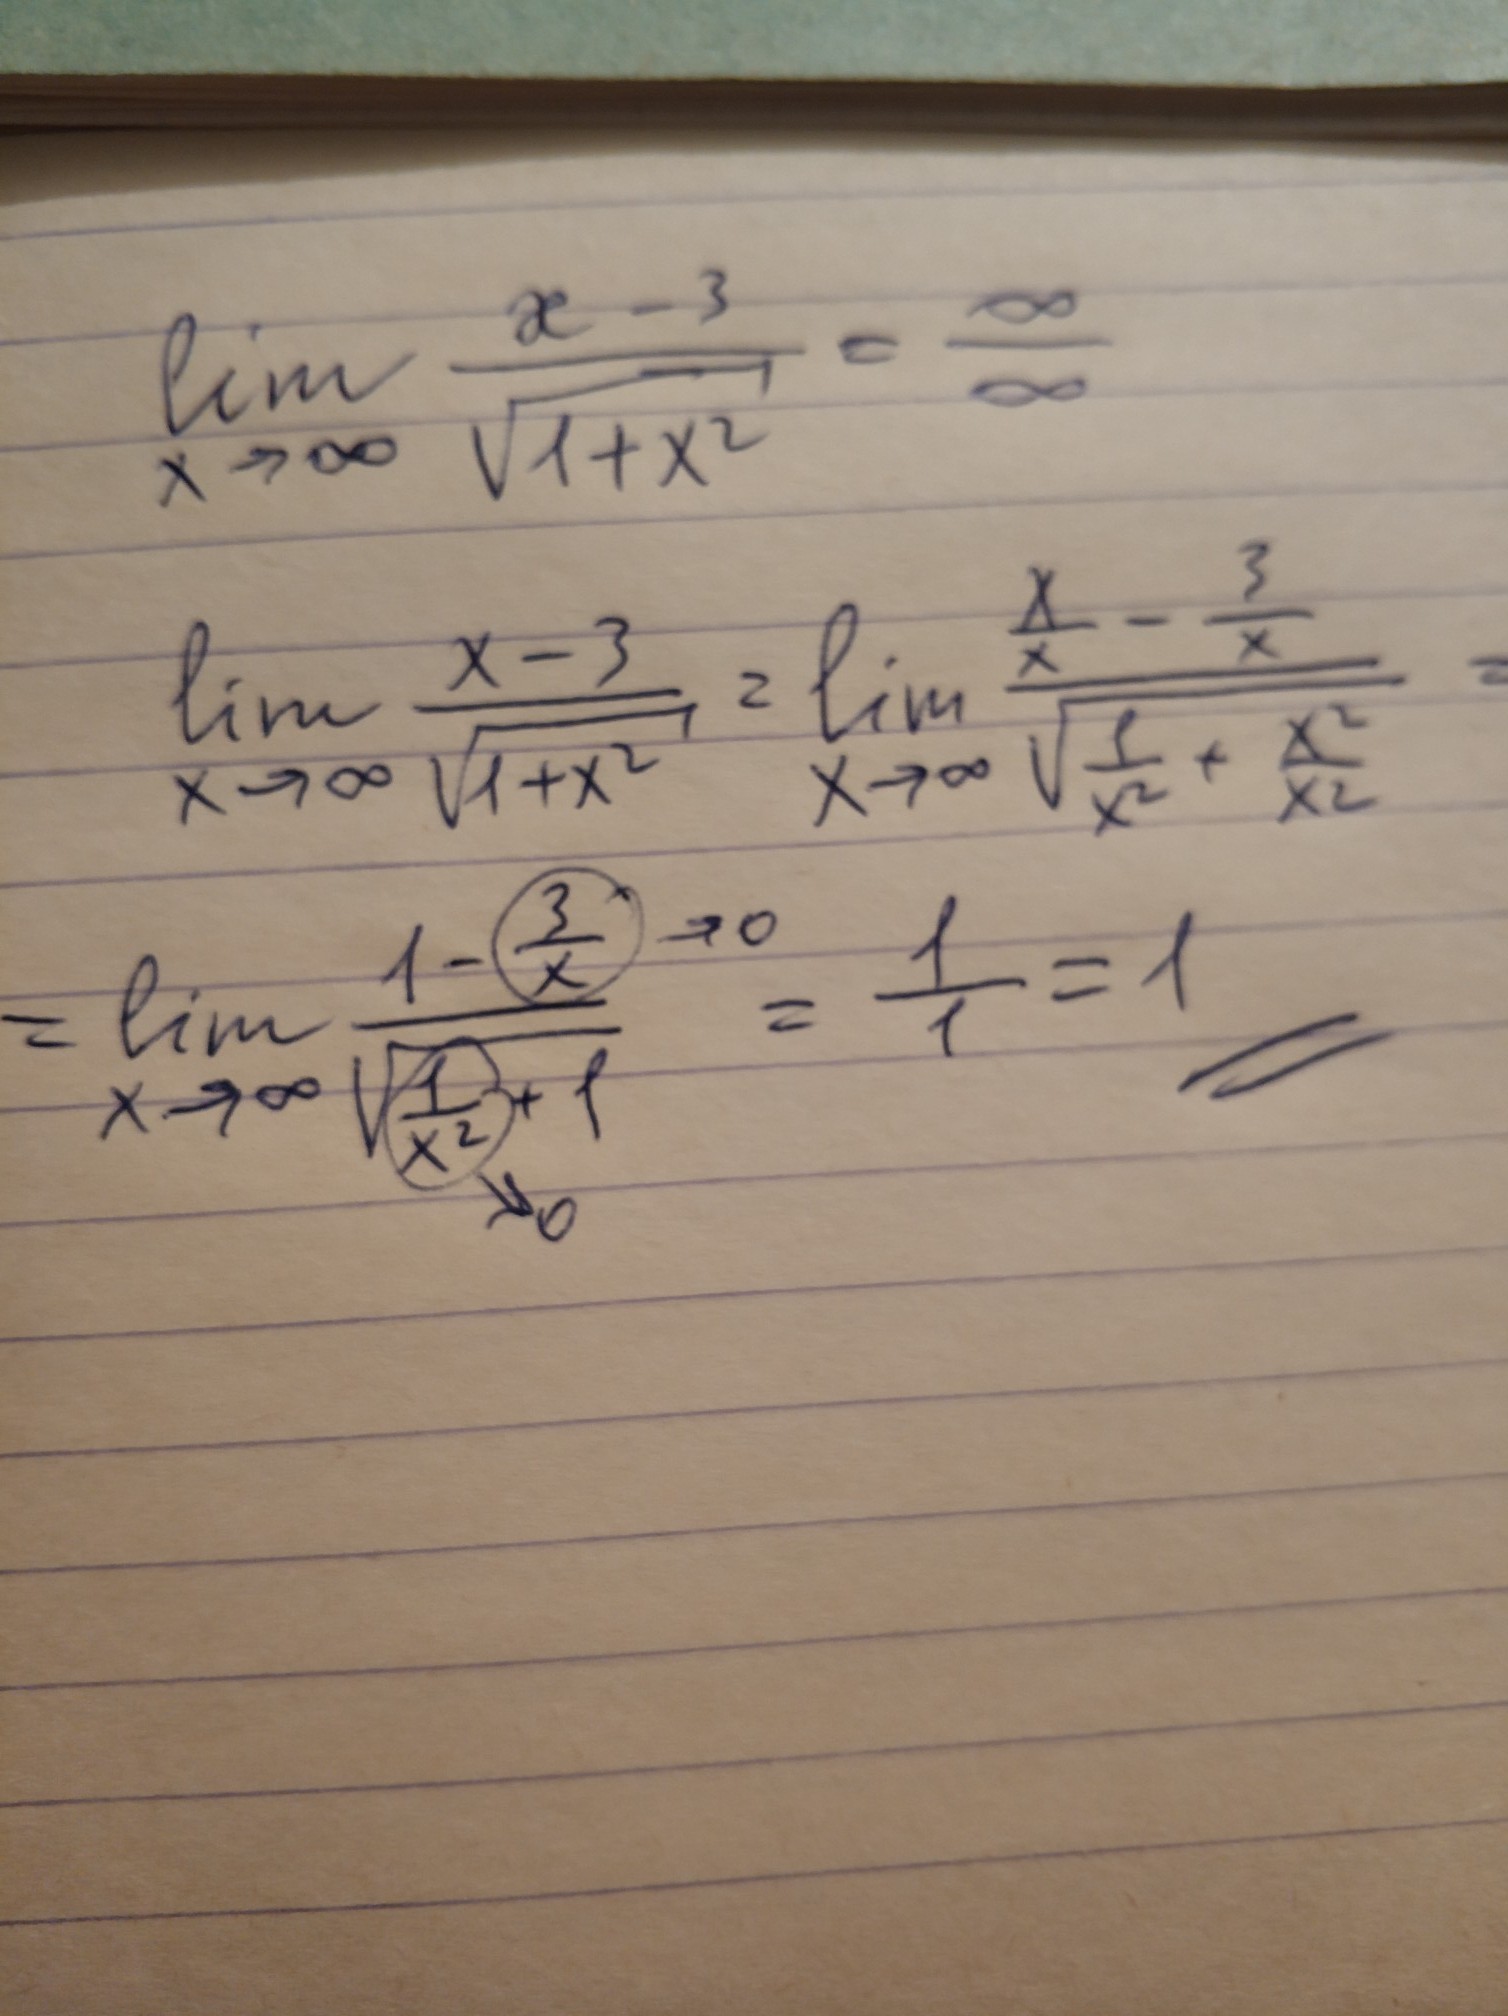 lim x→∞ (x - 3)/√(1+x²) = ∞/∞
lim x→∞ (x - 3)/√(1+x²) = lim x→∞ (x/x - 3/x)/√(1/x² + x²/x²) =
= lim x→∞ (1 - 3/x →0)/√(1/x² + 1) = 1/1 = 1
→0